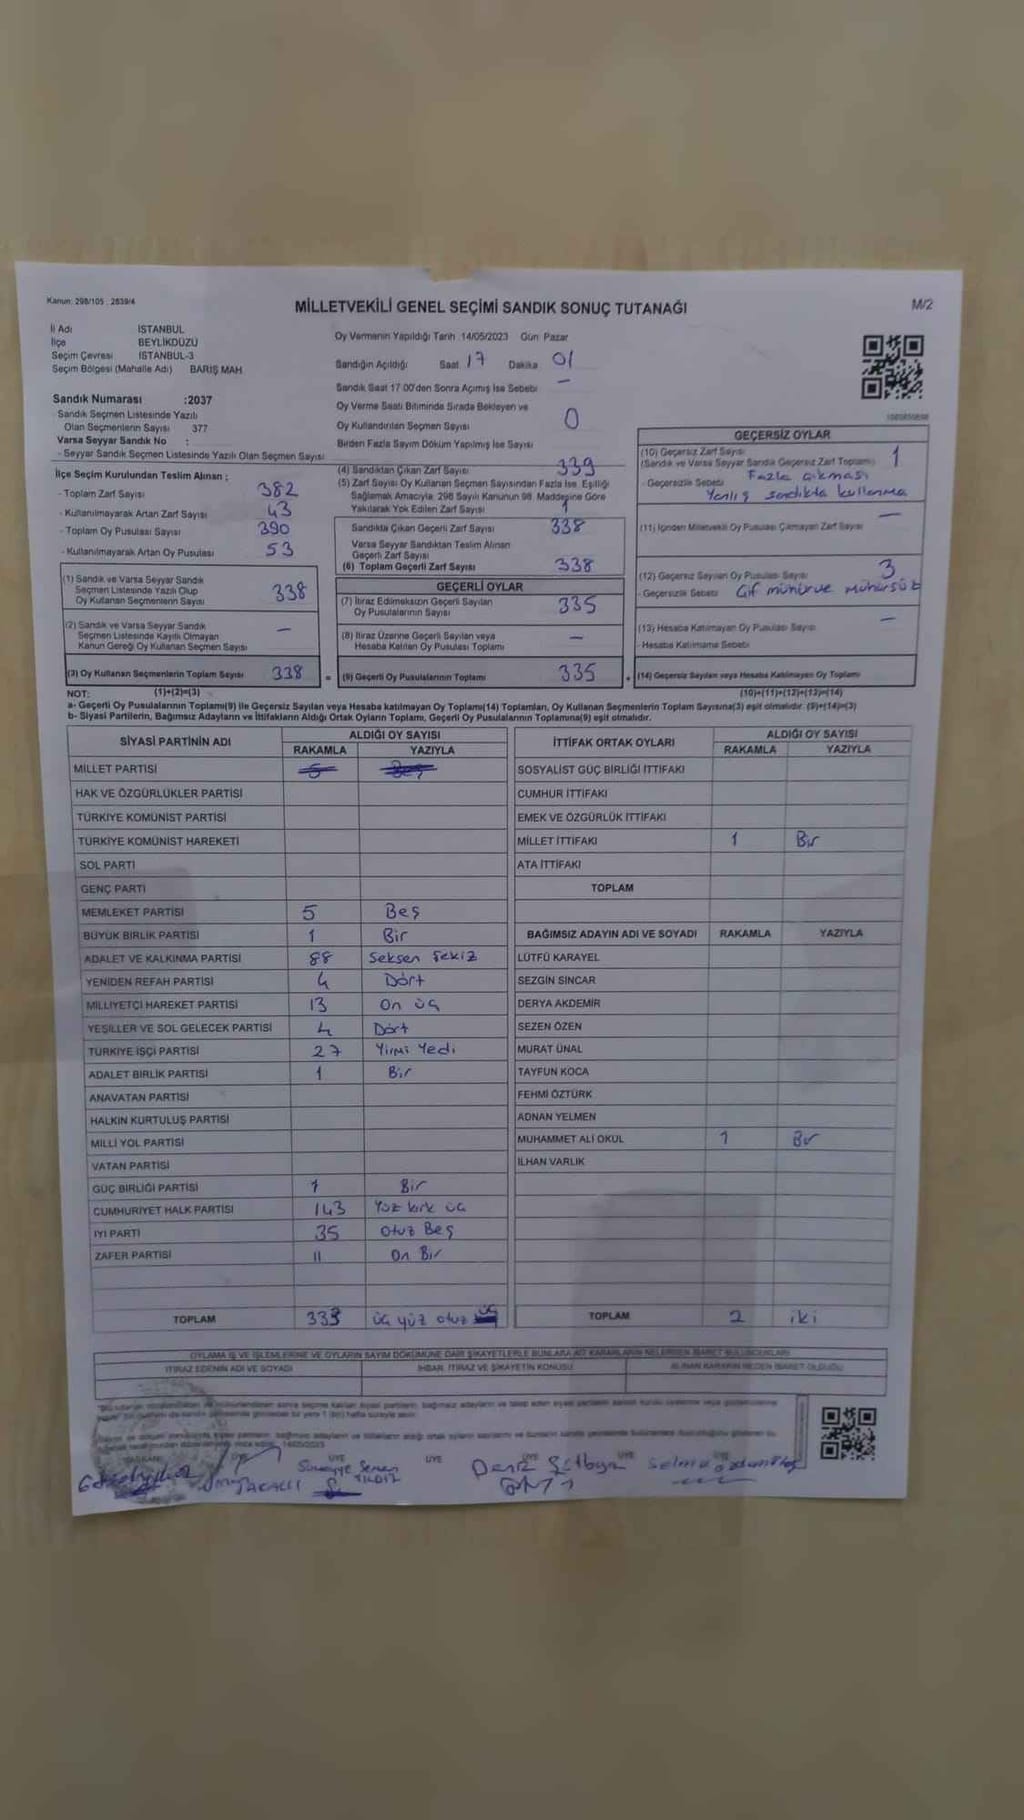 Kanun: 298/105 , 2839/4
MİLLETVEKİLİ GENEL SEÇİMİ SANDIK SONUÇ TUTANAĞI
M/2
İl Adı İSTANBUL
İlçe BEYLİKDÜZÜ
Seçim Çevresi İSTANBUL-3
Seçim Bölgesi (Mahalle Adı) BARIŞ MAH
Sandık Numarası :2037
Sandık Seçmen Listesinde Yazılı
Olan Seçmenlerin Sayısı 377
Varsa Seyyar Sandık No :
- Seyyar Sandık Seçmen Listesinde Yazılı Olan Seçmen Sayısı
Oy Vermenin Yapıldığı Tarih :14/05/2023 Gün Pazar
Sandığın Açıldığı Saat 17 Dakika 01
Sandık Saat 17.00'den Sonra Açılmış İse Sebebi –
Oy Verme Saati Bitiminde Sırada Bekleyen ve
Oy Kullandırılan Seçmen Sayısı 0
Birden Fazla Sayım Döküm Yapılmış İse Sayısı
İlçe Seçim Kurulundan Teslim Alınan ;
- Toplam Zarf Sayısı 382
- Kullanılmayarak Artan Zarf Sayısı 43
- Toplam Oy Pusulası Sayısı 390
- Kullanılmayarak Artan Oy Pusulası 53
(1) Sandık ve Varsa Seyyar Sandık
Seçmen Listesinde Yazılı Olup
Oy Kullanan Seçmenlerin Sayısı 338
(2) Sandık ve Varsa Seyyar Sandık
Seçmen Listesinde Kayıtlı Olmayan
Kanun Gereği Oy Kullanan Seçmen Sayısı –
(3) Oy Kullanan Seçmenlerin Toplam Sayısı 338
(4) Sandıktan Çıkan Zarf Sayısı 339
(5) Zarf Sayısı Oy Kullanan Seçmen Sayısından Fazla İse, Eşitliği
Sağlamak Amacıyla, 298 Sayılı Kanunun 98. Maddesine Göre
Yakılarak Yok Edilen Zarf Sayısı 1
Sandıkta Çıkan Geçerli Zarf Sayısı 338
Varsa Seyyar Sandıktan Teslim Alınan
Geçerli Zarf Sayısı
(6) Toplam Geçerli Zarf Sayısı 338
GEÇERLİ OYLAR
(7) İtiraz Edilmeksizin Geçerli Sayılan
Oy Pusulalarının Sayısı 335
(8) İtiraz Üzerine Geçerli Sayılan veya
Hesaba Katılan Oy Pusulası Toplamı –
= (9) Geçerli Oy Pusulalarının Toplamı 335
GEÇERSİZ OYLAR
(10) Geçersiz Zarf Sayısı
(Sandık ve Varsa Seyyar Sandık Geçersiz Zarf Toplamı) 1
- Geçersizlik Sebebi Fazla çıkması
Yanlış sandıkta kullanma
(11) İçinden Milletvekili Oy Pusulası Çıkmayan Zarf Sayısı –
(12) Geçersiz Sayılan Oy Pusulası Sayısı 3
- Geçersizlik Sebebi Çif mühürve mühürsüz
(13) Hesaba Katılmayan Oy Pusulası Sayısı –
- Hesaba Katılmama Sebebi
+ (14) Geçersiz Sayılan veya Hesaba Katılmayan Oy Toplamı
NOT: (1)+(2)=(3) (10)+(11)+(12)+(13)=(14)
a- Geçerli Oy Pusulalarının Toplamı(9) ile Geçersiz Sayılan veya Hesaba Katılmayan Oy Toplamı(14) Toplamları, Oy Kullanan Seçmenlerin Toplam Sayısına(3) eşit olmalıdır. (9)+(14)=(3)
b- Siyasi Partilerin, Bağımsız Adayların ve İttifakların Aldığı Ortak Oyların Toplamı, Geçerli Oy Pusulalarının Toplamına(9) eşit olmalıdır.
SİYASİ PARTİNİN ADI ALDIĞI OY SAYISI
RAKAMLA YAZIYLA
MİLLET PARTİSİ 5 Beş
HAK VE ÖZGÜRLÜKLER PARTİSİ
TÜRKİYE KOMÜNİST PARTİSİ
TÜRKİYE KOMÜNİST HAREKETİ
SOL PARTİ
GENÇ PARTİ
MEMLEKET PARTİSİ 5 Beş
BÜYÜK BİRLİK PARTİSİ 1 Bir
ADALET VE KALKINMA PARTİSİ 88 Seksen Sekiz
YENİDEN REFAH PARTİSİ 4 Dört
MİLLİYETÇİ HAREKET PARTİSİ 13 On üç
YEŞİLLER VE SOL GELECEK PARTİSİ 4 Dört
TÜRKİYE İŞÇİ PARTİSİ 27 Yirmi Yedi
ADALET BİRLİK PARTİSİ 1 Bir
ANAVATAN PARTİSİ
HALKIN KURTULUŞ PARTİSİ
MİLLİ YOL PARTİSİ
VATAN PARTİSİ
GÜÇ BİRLİĞİ PARTİSİ 1 Bir
CUMHURİYET HALK PARTİSİ 143 Yüz kırk üç
İYİ PARTİ 35 Otuz Beş
ZAFER PARTİSİ 11 On Bir
TOPLAM 333 üç yüz otuz üç
İTTİFAK ORTAK OYLARI ALDIĞI OY SAYISI
RAKAMLA YAZIYLA
SOSYALİST GÜÇ BİRLİĞİ İTTİFAKI
CUMHUR İTTİFAKI
EMEK VE ÖZGÜRLÜK İTTİFAKI
MİLLET İTTİFAKI 1 Bir
ATA İTTİFAKI
TOPLAM
BAĞIMSIZ ADAYIN ADI VE SOYADI RAKAMLA YAZIYLA
LÜTFÜ KARAYEL
SEZGİN SİNCAR
DERYA AKDEMİR
SEZEN ÖZEN
MURAT ÜNAL
TAYFUN KOCA
FEHMİ ÖZTÜRK
ADNAN YELMEN
MUHAMMET ALİ OKUL 1 Bir
İLHAN VARLIK
TOPLAM 2 iki
OYLAMA İŞ VE İŞLEMLERİNE VE OYLARIN SAYIM DÖKÜMÜNE DAİR ŞİKAYETLERLE BUNLARA AİT KARARLARIN NELERDEN İBARET BULUNDUKLARI
İTİRAZ EDENİN ADI VE SOYADI İHBAR, İTİRAZ VE ŞİKAYETİN KONUSU ALINAN KARARIN NEDEN İBARET OLDUĞU
BAŞKAN ÜYE ÜYE ÜYE ÜYE ÜYE ÜYE
Sümeyye Senem
YILDIZ
Deniz
Selma